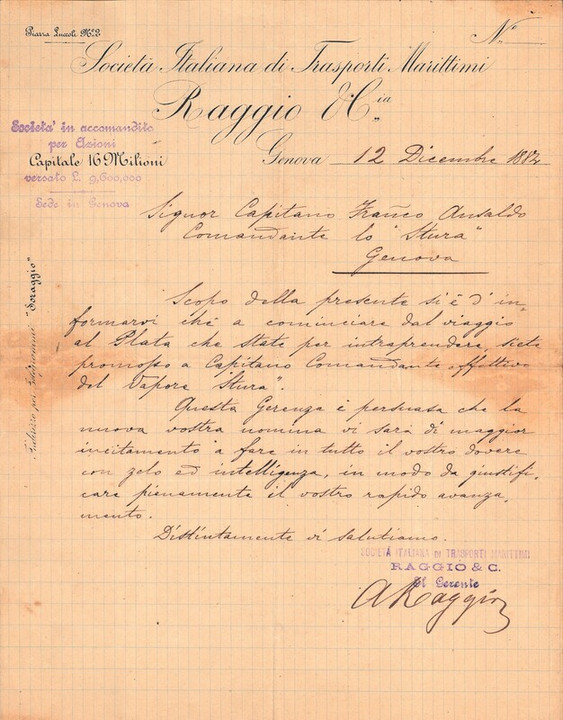 Piazza Luccoli Nº 2
Nº
Società Italiana di Trasporti Marittimi
Raggio & Cia
Società in accomandita
per Azioni
Capitale 16 Milioni
versato L. 9,600,000
Sede in Genova
Genova 12 Dicembre 188
Signor Capitano Franco Ansaldo
Comandante lo "Stura"
Genova
Scopo della presente si è d'in-
formarvi che a cominciare dal viaggio
al Plata che state per intraprendere, siete
promosso a Capitano Comandante effettivo
del Vapore Stura".
Questa Gerenza è persuasa che la
nuova vostra nomina vi sarà di maggior
incitamento a fare in tutto il vostro dovere
con zelo ed intelligenza, in modo da giustifi-
care pienamente il vostro rapido avanza-
mento.
Distintamente vi salutiamo.
SOCIETÀ ITALIANA DI TRASPORTI MARITTIMI
RAGGIO & C.
Il Gerente
ARaggio
Indirizzo pei Telegrammi "Soraggio"